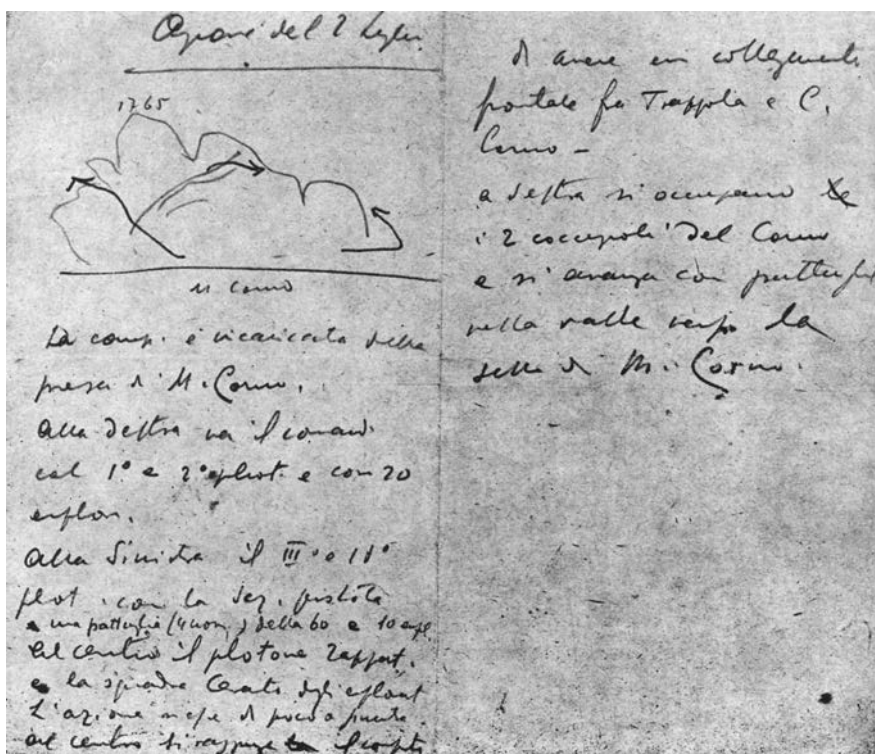 del 2 Luglio
1765
M Corno
La comp. è incaricata della
presa di M. Corno.
Alla destra va il comand.
col 1° e 2° plot. e con 20
esplor.
Alla Sinistra il III° e IV°
plot. con la Sez. pistola
una pattuglia (4 uom.) della 60 e 10 espl
Al centro il plotone Zappat.
e la squadra Cerato degli esplorat
L'azione di poco a
al centro si raggiunge
di avere un collegamento
frontale fra Trappola e C.
Corno -
a destra si occupano
i 2 cocuzzoli del Corno
e si avanza con pattuglie
nella valle verso la
sella di M. Corno.